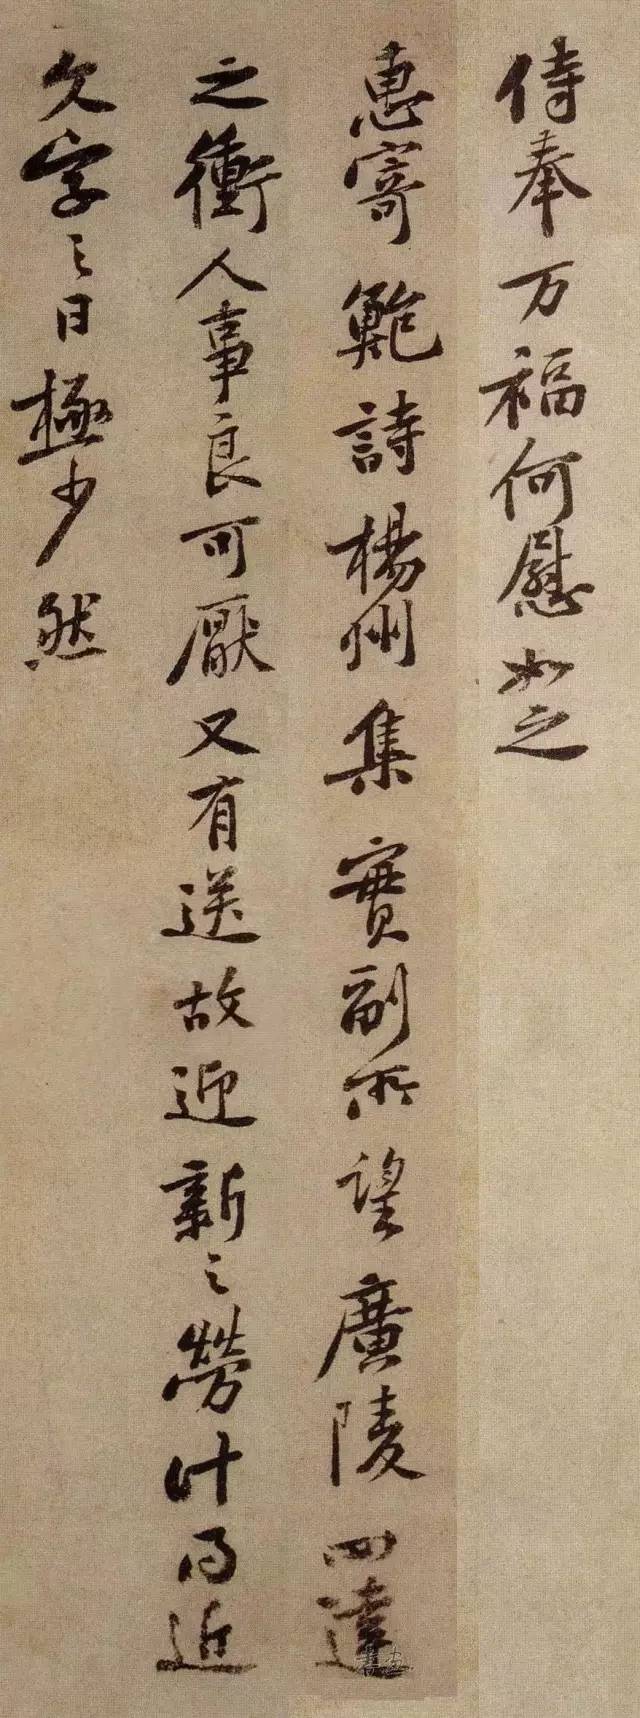 侍奉万福何慰如之
惠寄鮑詩楊州集實副所望廣陵四達
之衝人事良可厭又有送故迎新之勞計日近
文字之日極少然